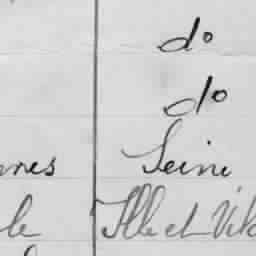 do
do
nnes Seine
le Ille et Vil